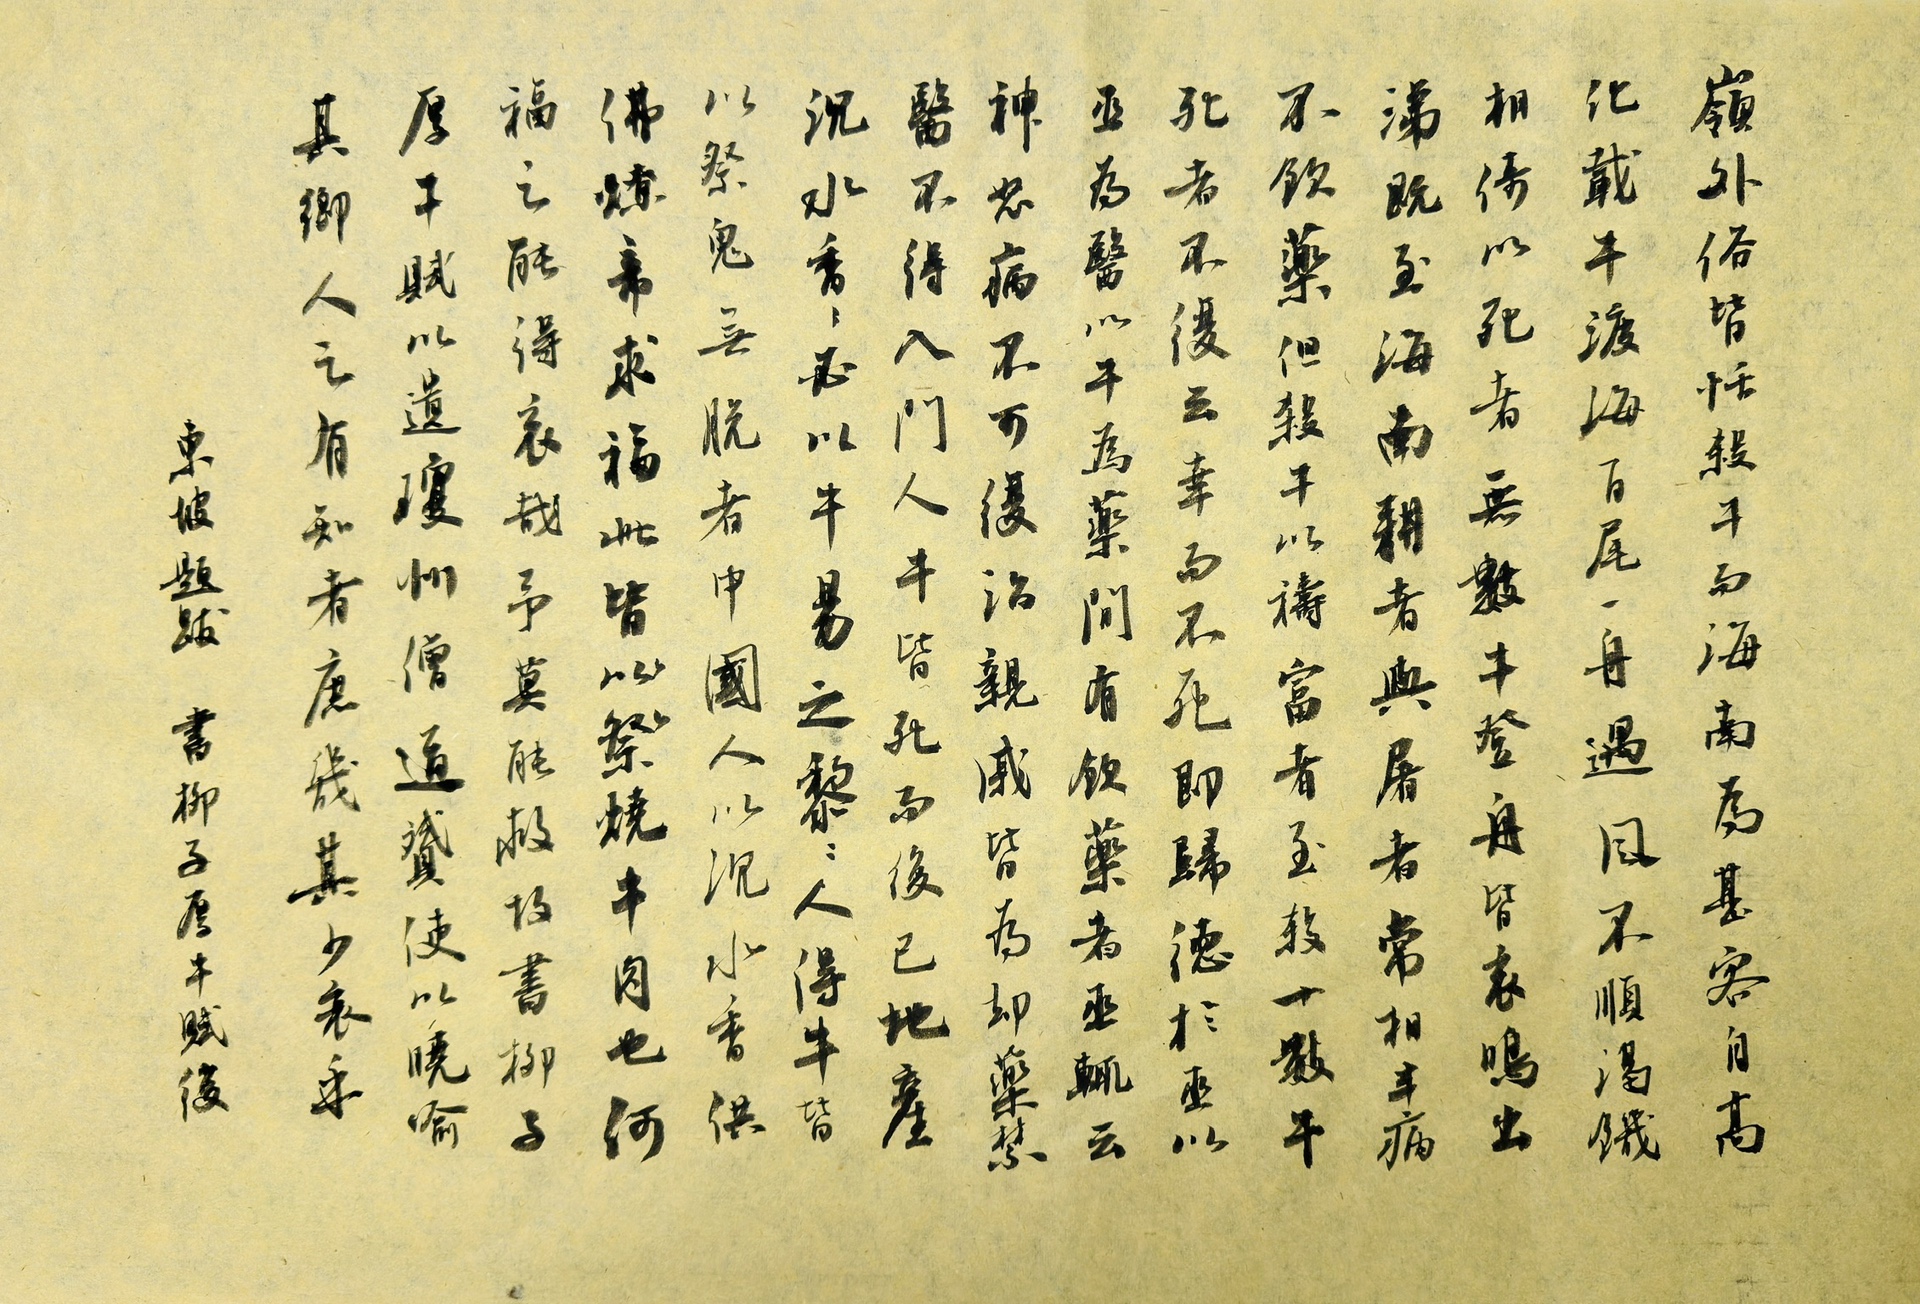 嶺外俗皆恬殺牛而海南為甚客自高
化載牛渡海百尾一舟遇風不順渴饑
相倚以死者無數牛登舟皆哀鳴出
涕既至海南耕者與屠者常相半病
不飲藥但殺牛以禱富者至殺十數牛
死者不復云幸而不死即歸德於巫以
巫為醫以牛為藥間有飲藥者巫輒云
神怒病不可復治親戚皆為却藥禁
醫不得入門人牛皆死而後已地產
沉水香〻必以牛易之黎〻人得牛皆
以祭鬼無脫者中國人以沉水香供
佛燎帝求福此皆以祭燒牛肉也何
福之能得哀哉予莫能救故書柳子
厚牛賦以遺瓊州僧道贇使以曉喻
其鄉人之有知者庶幾其少衰乎
東坡題跋 書柳子厚牛賦後